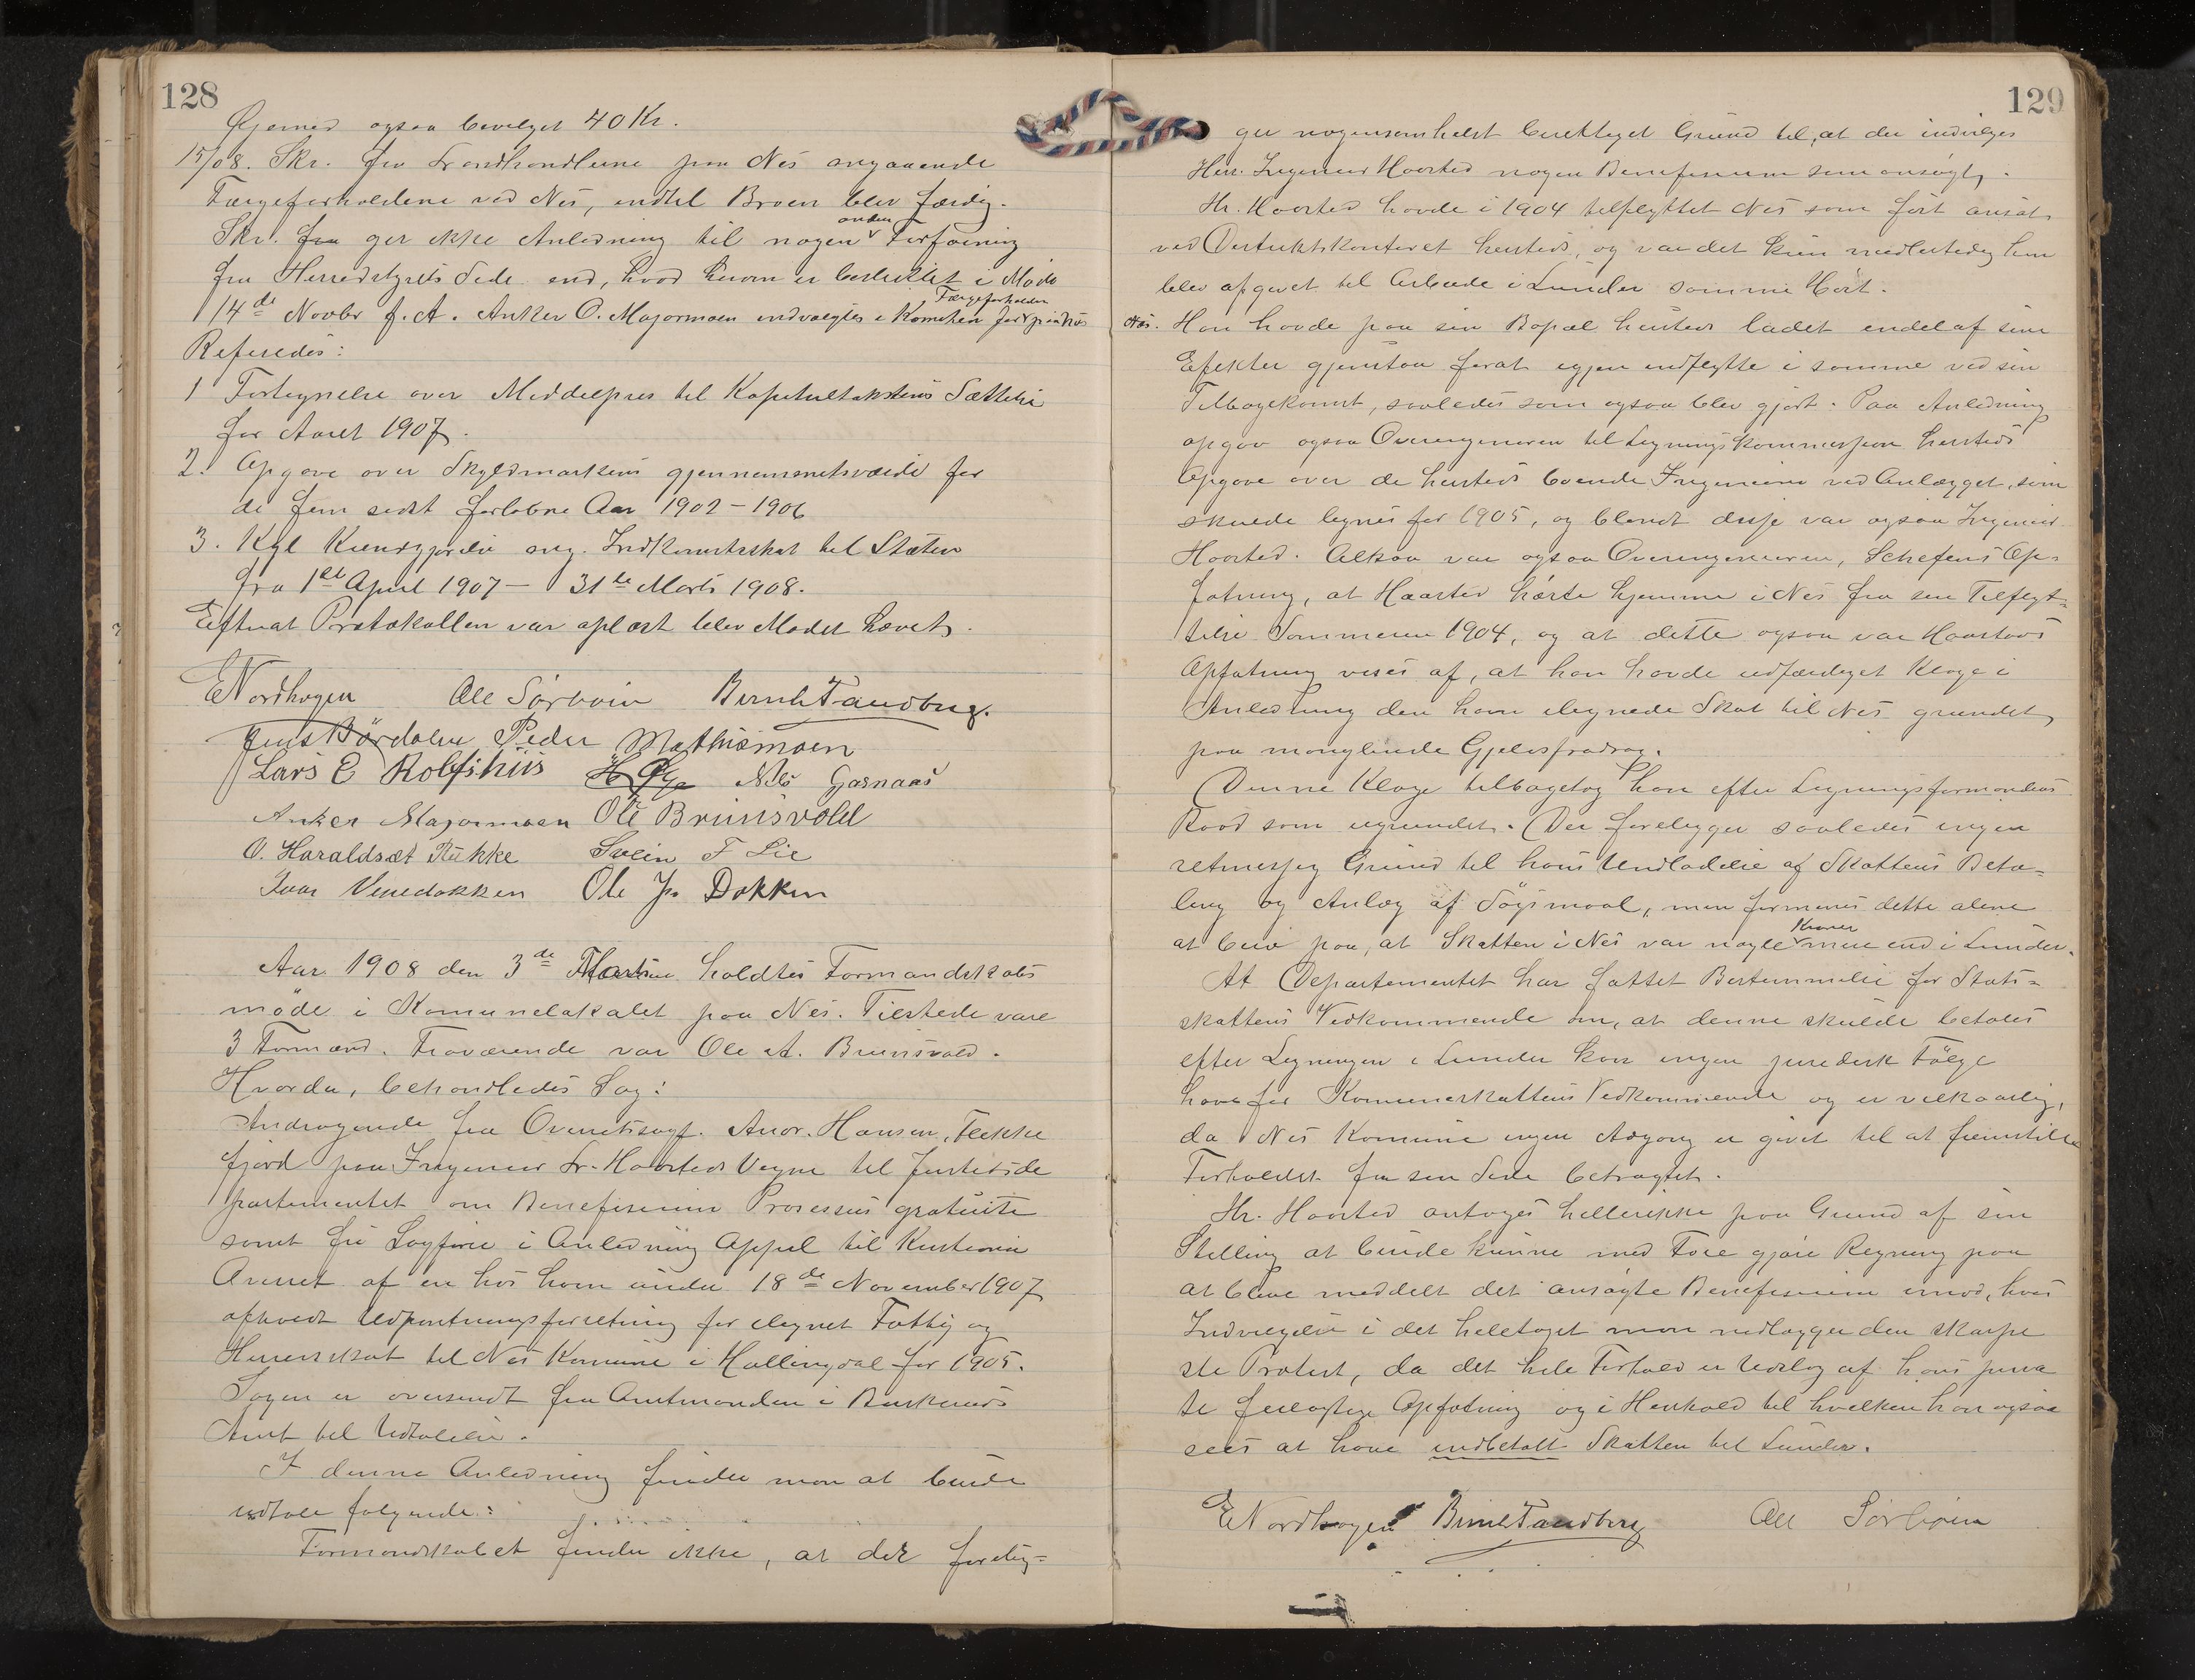 128
Øjemed ogsaa bevilget 40 Kr.
15/08. Skr. fra Landhandlerne paa Nes angaaende
Færgeforholdene ved Nes, indtil Broen blev færdig.
Skr. fra ger ikke Anledning til nogen anden Forføining
fra Herredstyrets Side end, hvad herom er besluttet i Møde
14de Novbr f. A. Anker O. Majormoen indvalgtes i Komiteen for Færgeforholden paa Nes
Refereredes:
1 Fortegnelse over Middelpris til Kapitultakstens Sættelse
for Aaret 1907.
2. Opgave over Skyldmarkens gjennemsnitsværdi for
de fem sidst forløbne Aar 1902 - 1906
3. Kgl Kundgjørelse ang. Indkomstskat til Staten
fra 1ste April 1907 - 31te Marts 1908.
Efterat Protokollen var oplæst blev Mødet hævet.
E Nordhagen Ole Sørbøen Bernh Tandberg.
Jens Bördalen Peder Mathismoen
Lars E Rolfshus Nils Garnaas
Anker Majormoen Ole Brunsvold
O. Haraldset Rukke Svein T Lie
Ivar Venedokken Ole Jr Dokken
Aar 1908 den 3de Marts holdtes Formandskabs
møde i Komunelokalet paa Nes. Tilstede vare
3 Formænd. Fraværende var Ole A. Brunsvold.
Hvorda, behandledes Sag:
Andragende fra Overretssagf. Andr. Hansen, Flekke
fjord paa Ingeniør Fr. Haarsteds Vegne til Justitsde
partementet om Benefisium Prosessus gratuite
samt fri Sagfører i Anledning Appel til Kristiania
Overret af en hos ham under 18de November 1907
afholdt Udpantningsforretning for ilignet Fattig og
Herredsskat til Nes Komune i Hallingdal for 1905.
Sagen er oversendt fra Amtmanden i Buskeruds
Amt til Udtalelse.
I denne Anledning finder man at burde
udtale følgende:
Formandskabet finder ikke, at der forelig=
129
ger nogensomhelst berettiget Grund til, at der indvilges
Herr. Ingeniør Haarsted nogen Benefisium som ansøgt.
Hr. Haarsted havde i 1904 tilflyttet Nes som fast ansat
ved Distriktskontoret hersteds, og var det kun midlertidig han
blev afgivet til Arbeide i Lunder samme Høst.
Nes. Han havde paa sin Bopæl hersteds ladet endel af sine
Efekter gjenstaa forat igjen indflytte i samme ved sin
Tilbagekomst, saaledes som ogsaa blev gjort. Paa Anledning
opgav ogsaa Overingeniøren til Ligningskommissjon hersteds
Opgave over de hersteds boende Ingeniører ved Anlægget, som
skulde lignes for 1905, og blandt disse var ogsaa Ingeniør
Haarsted. Altsaa var ogsaa Overingeniøren, Schefens Op=
fatning, at Haarsted hørte hjemme i Nes fra sin Tilflyt=
telse Sommeren 1904, og at dette ogsaa var Haarsteds
Opfatning vises af, at han havde udfærdiget Klage i
Anledning den ham ilignede Skat til Nes grundet
paa manglende Gjeldsfradrag.
Denne Klage tilbagetog han efter Ligningsformandens
Raad som ugrundet. Der foreligger saaledes ingen
retmessig Grund til hans Undladelse af Skattens Beta=
ling og Anlæg af Søgsmaal, men formenes dette alene
at bero paa, at Skatten i Nes var nogle Kroner mere end i Lunder.
At Departementet har fattet Bestemmelse for Stats=
skattens Vedkommende om, at denne skulde betales
efter Ligningen i Lunder kan ingen juridisk Følge
have for Komuneskattens Vedkommende og er vilkaarlig,
da Nes Komune ingen Adgang er givet til at fremstille
Forholdet fra sin Side betragtet.
Hr. Haarsted antages hellerikke paa Grund af sin
Stilling at burde kunne med Føie gjøre Regning paa
at blive meddelt det ansøgte Benefisium imod, hvis
Indvilgelse i det heletaget man nedlægger den skarpe
ste Protest, da det hele Forhold er Udslag af hans priva
te feilagtige Opfatning og i Henhold til hvilken han ogsaa
sees at have indbetalt Skatten til Lunder.
E Nordhagen Bernh Tandberg Ole Sørbøen